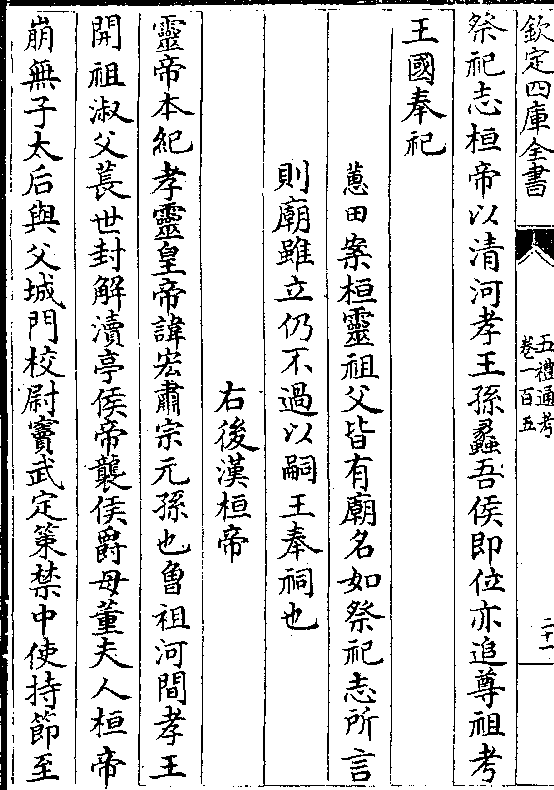 欽定四庫全書
五禮通考
卷一百五
二十一
祭祀志桓帝以清河孝王孫蠡吾侯即位亦追尊祖考
王國奉祀
蕙田案桓靈祖父皆有廟名如祭祀志所言
則廟雖立仍不過以嗣王奉祠也
右後漢桓帝
靈帝本紀孝靈皇帝諱宏肅宗元孫也魯祖河間孝王
開祖淑父萇世封解瀆亭侯帝襲侯爵母董夫人桓帝
崩無子太后與父城門校尉竇武定策禁中使持節至